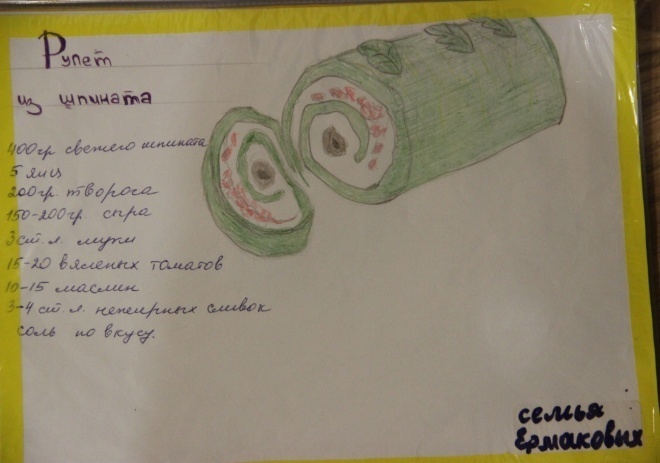 Рулет
из шпината
400гр свежего шпината
5 яиц
200гр. творога
150-200гр. сыра
3 ст. л. муки
15-20 вяленых томатов
10-15 маслин
3-4 ст. л. нежирных сливок
соль по вкусу.
семья
Ермаковых